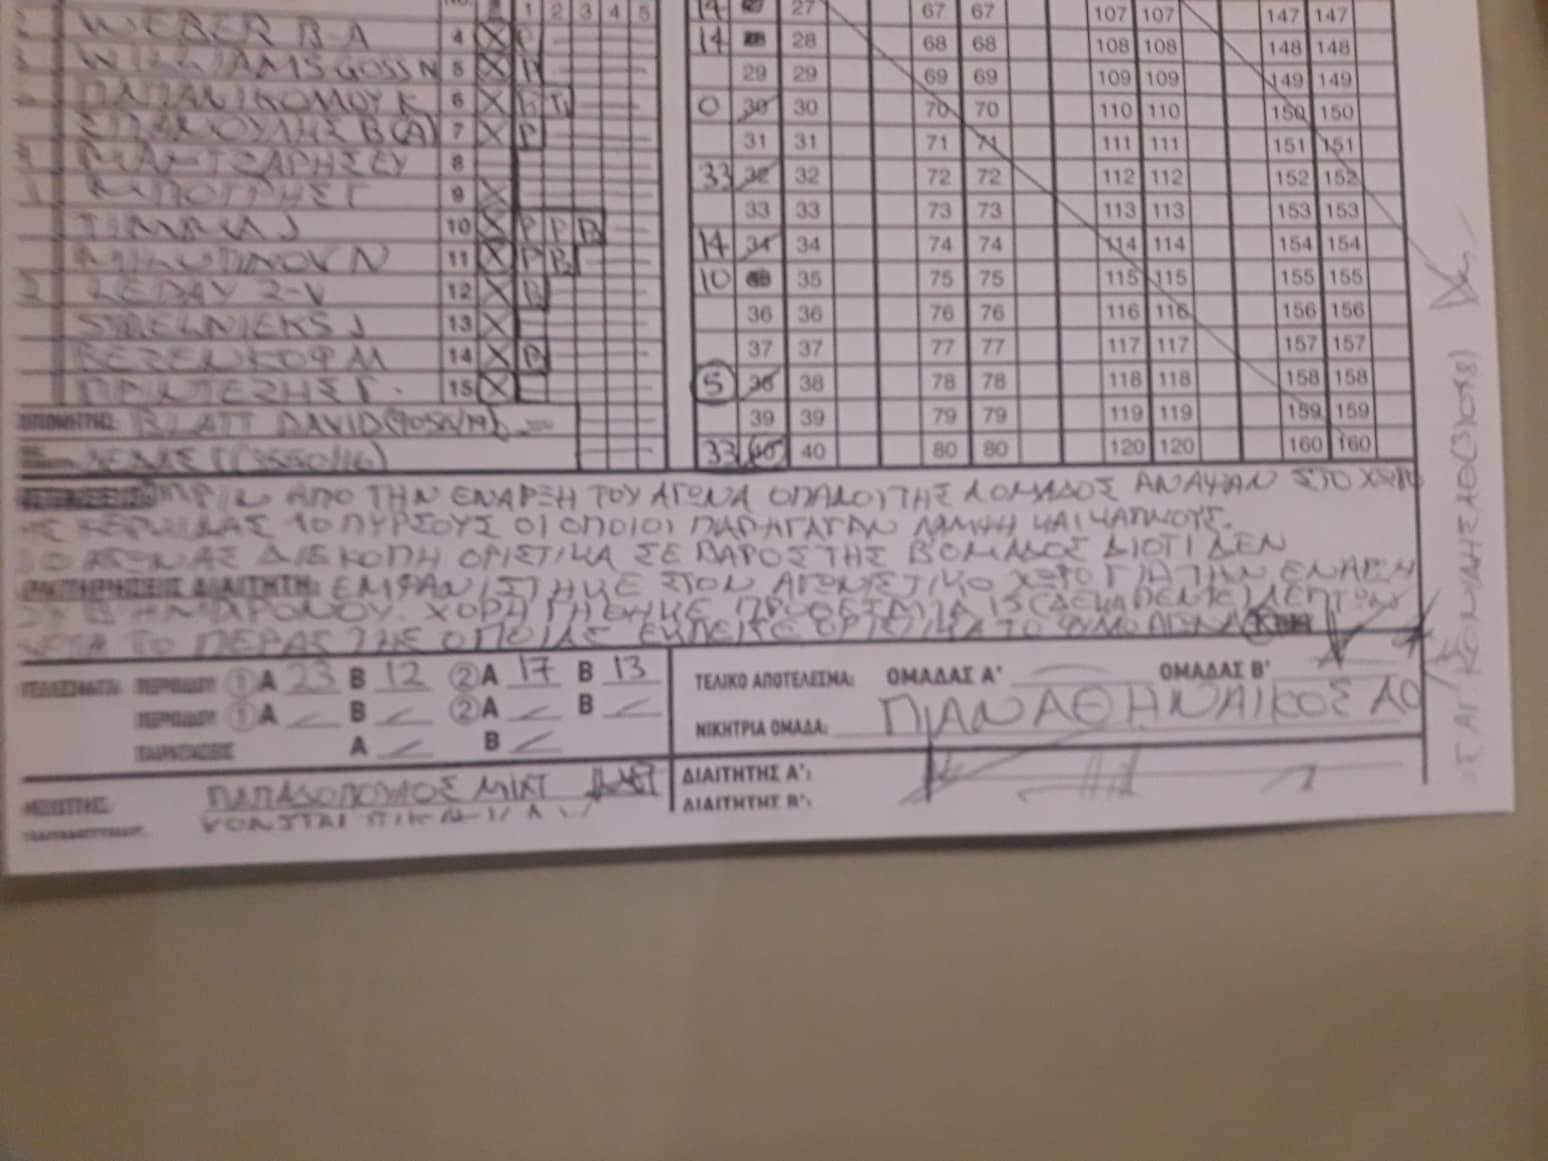 No. 1 2 3 4 5
WEBER B-A 4 X P
WILLIAMS GOSS N 5 X P
ΠΑΠΑΝΙΚΟΛΑΟΥ Κ 6 X
ΣΠΑΝΟΥΛΗΣ Β (Α) 7 X P
ΜΑΝΤΖΑΡΗΣ ΕΥ 8
ΜΠΟΓΡΗΣ Γ 9 X
TIMMA J 10 X P P P
MILUTINOV N 11 X P P
LEDAY Z-V 12 X P
STRELNIEKS J 13 X
ΒΕΖΕΝΚΟΦ Α 14 X P
ΠΡΙΝΤΕΖΗΣ Γ. 15 X
ΠΡΟΠΟΝΗΤΗΣ: BLATT DAVID
14 27 67 67 107 107 147 147
14 28 68 68 108 108 148 148
29 29 69 69 109 109 149 149
0 30 30 70 70 110 110 150 150
31 31 71 71 111 111 151 151
33 32 32 72 72 112 112 152 152
33 33 73 73 113 113 153 153
14 34 34 74 74 114 114 154 154
10 35 75 75 115 115 155 155
36 36 76 76 116 116 156 156
37 37 77 77 117 117 157 157
5 38 38 78 78 118 118 158 158
39 39 79 79 119 119 159 159
33 40 40 80 80 120 120 160 160
ΠΡΙΝ ΑΠΟ ΤΗΝ ΕΝΑΡΞΗ ΤΟΥ ΑΓΩΝΑ ΟΠΑΔΟΙ ΤΗΣ Α ΟΜΑΔΟΣ ΑΝΑΨΑΝ ΣΤΟ ΧΩΡΟ
ΤΗΣ ΚΕΡΚΙΔΑΣ 10 ΠΥΡΣΟΥΣ ΟΙ ΟΠΟΙΟΙ ΠΑΡΗΓΑΓΑΝ ΛΑΜΨΗ ΚΑΙ ΚΑΠΝΟΥΣ.
Ο ΑΓΩΝΑΣ ΔΙΕΚΟΠΗ ΟΡΙΣΤΙΚΑ ΣΕ ΒΑΡΟΣ ΤΗΣ Β ΟΜΑΔΟΣ ΔΙΟΤΙ ΔΕΝ
ΠΑΡΑΤΗΡΗΣΕΙΣ ΔΙΑΙΤΗΤΗ: ΕΜΦΑΝΙΣΤΗΚΕ ΣΤΟΝ ΑΓΩΝΙΣΤΙΚΟ ΧΩΡΟ ΓΙΑ ΤΗΝ ΕΝΑΡΞΗ
ΤΟΥ Β ΗΜΙΧΡΟΝΟΥ. ΧΟΡΗΓΗΘΗΚΕ ΠΡΟΘΕΣΜΙΑ 15 (ΔΕΚΑΠΕΝΤΕ) ΛΕΠΤΩΝ
ΜΕΤΑ ΤΟ ΠΕΡΑΣ ΤΗΣ ΟΠΟΙΑΣ ΟΡΙΣΤΙΚΑ ΤΟ
ΠΕΡΙΟΔΟΥ ① Α 23 Β 12 ② Α 17 Β 13
ΠΕΡΙΟΔΟΥ ① Α Β ② Α Β
ΠΑΡΑΤΑΣΕΙΣ Α Β
ΤΕΛΙΚΟ ΑΠΟΤΕΛΕΣΜΑ: ΟΜΑΔΑΣ Α' ΟΜΑΔΑΣ Β'
ΝΙΚΗΤΡΙΑ ΟΜΑΔΑ: ΠΑΝΑΘΗΝΑΙΚΟΣ ΑΟ
ΠΑΠΑΔΟΠΟΥΛΟΣ
ΔΙΑΙΤΗΤΗΣ Α':
ΔΙΑΙΤΗΤΗΣ Β':